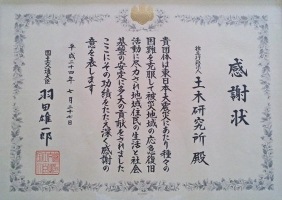 感謝状
独立行政法人
土木研究所 殿
貴団体は東日本大震災にあたり種々の
困難を克服して被災地域の応急復旧
活動に尽力され地域住民の生活と社会
基盤の安定に多大の貢献をされました
ここにその功績をたたえ深く感謝の
意を表します
平成二十四年 七月二十七日
国土交通大臣
羽田雄一郎